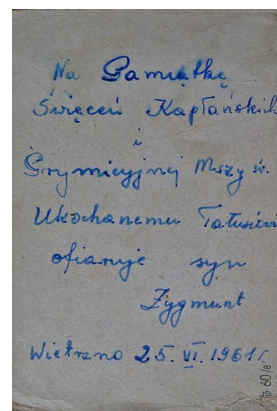 Na Pamiątkę
Święceń Kapłańskich
i
Prymicyjnej Mszy św.
Ukochanemu Tatusiowi
ofiaruje syn
Zygmunt
Wietrzno 25. VI. 1961 r.
60/8